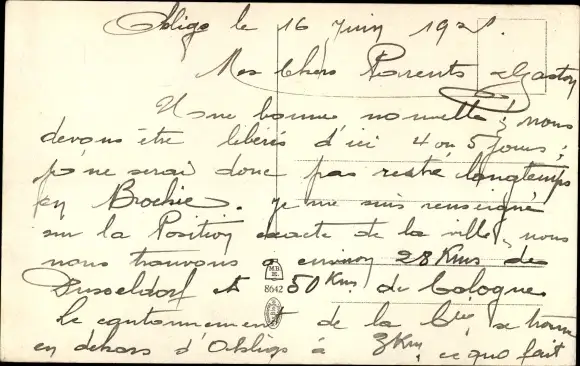 Ohligs le 16 Juin 1921.
Mes Chers Parents & Gaston
Une bonne nouvelle; nous
devons être libérés d'ici 4 ou 5 jours;
je ne serai donc pas resté longtemps
en Bochie. Je me suis renseigné
sur la Position exacte de la ville, nous
nous trouvons à environ 28 Kms de
Dusseldorf et 50 Kms de Cologne
Le cantonnement de la Cie se trouve
en dehors d'Ohligs à 3Km, ce qui fait
M.B.
8642